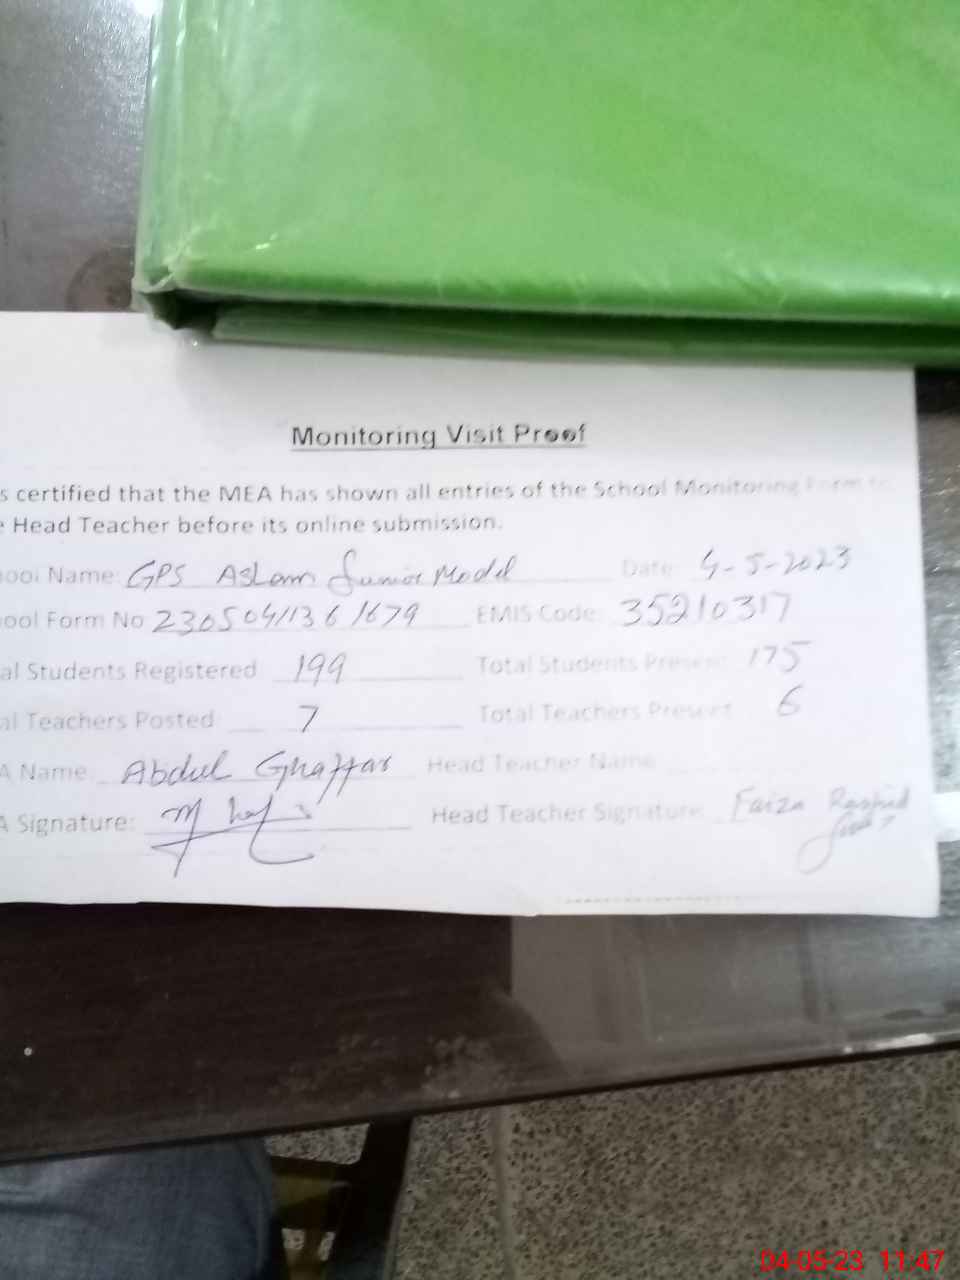 Monitoring Visit Proof
s certified that the MEA has shown all entries of the School Monitoring Form to
e Head Teacher before its online submission.
ool Name: GPS Aslam Junior Model Date: 4-5-2023
ool Form No 23050411361679 EMIS Code: 35210317
al Students Registered 199 Total Students Present 175
al Teachers Posted 7 Total Teachers Present 6
A Name Abdul Ghaffar Head Teacher Name
A Signature: Head Teacher Signature: Faiza Rashid
04-05-23 11:47